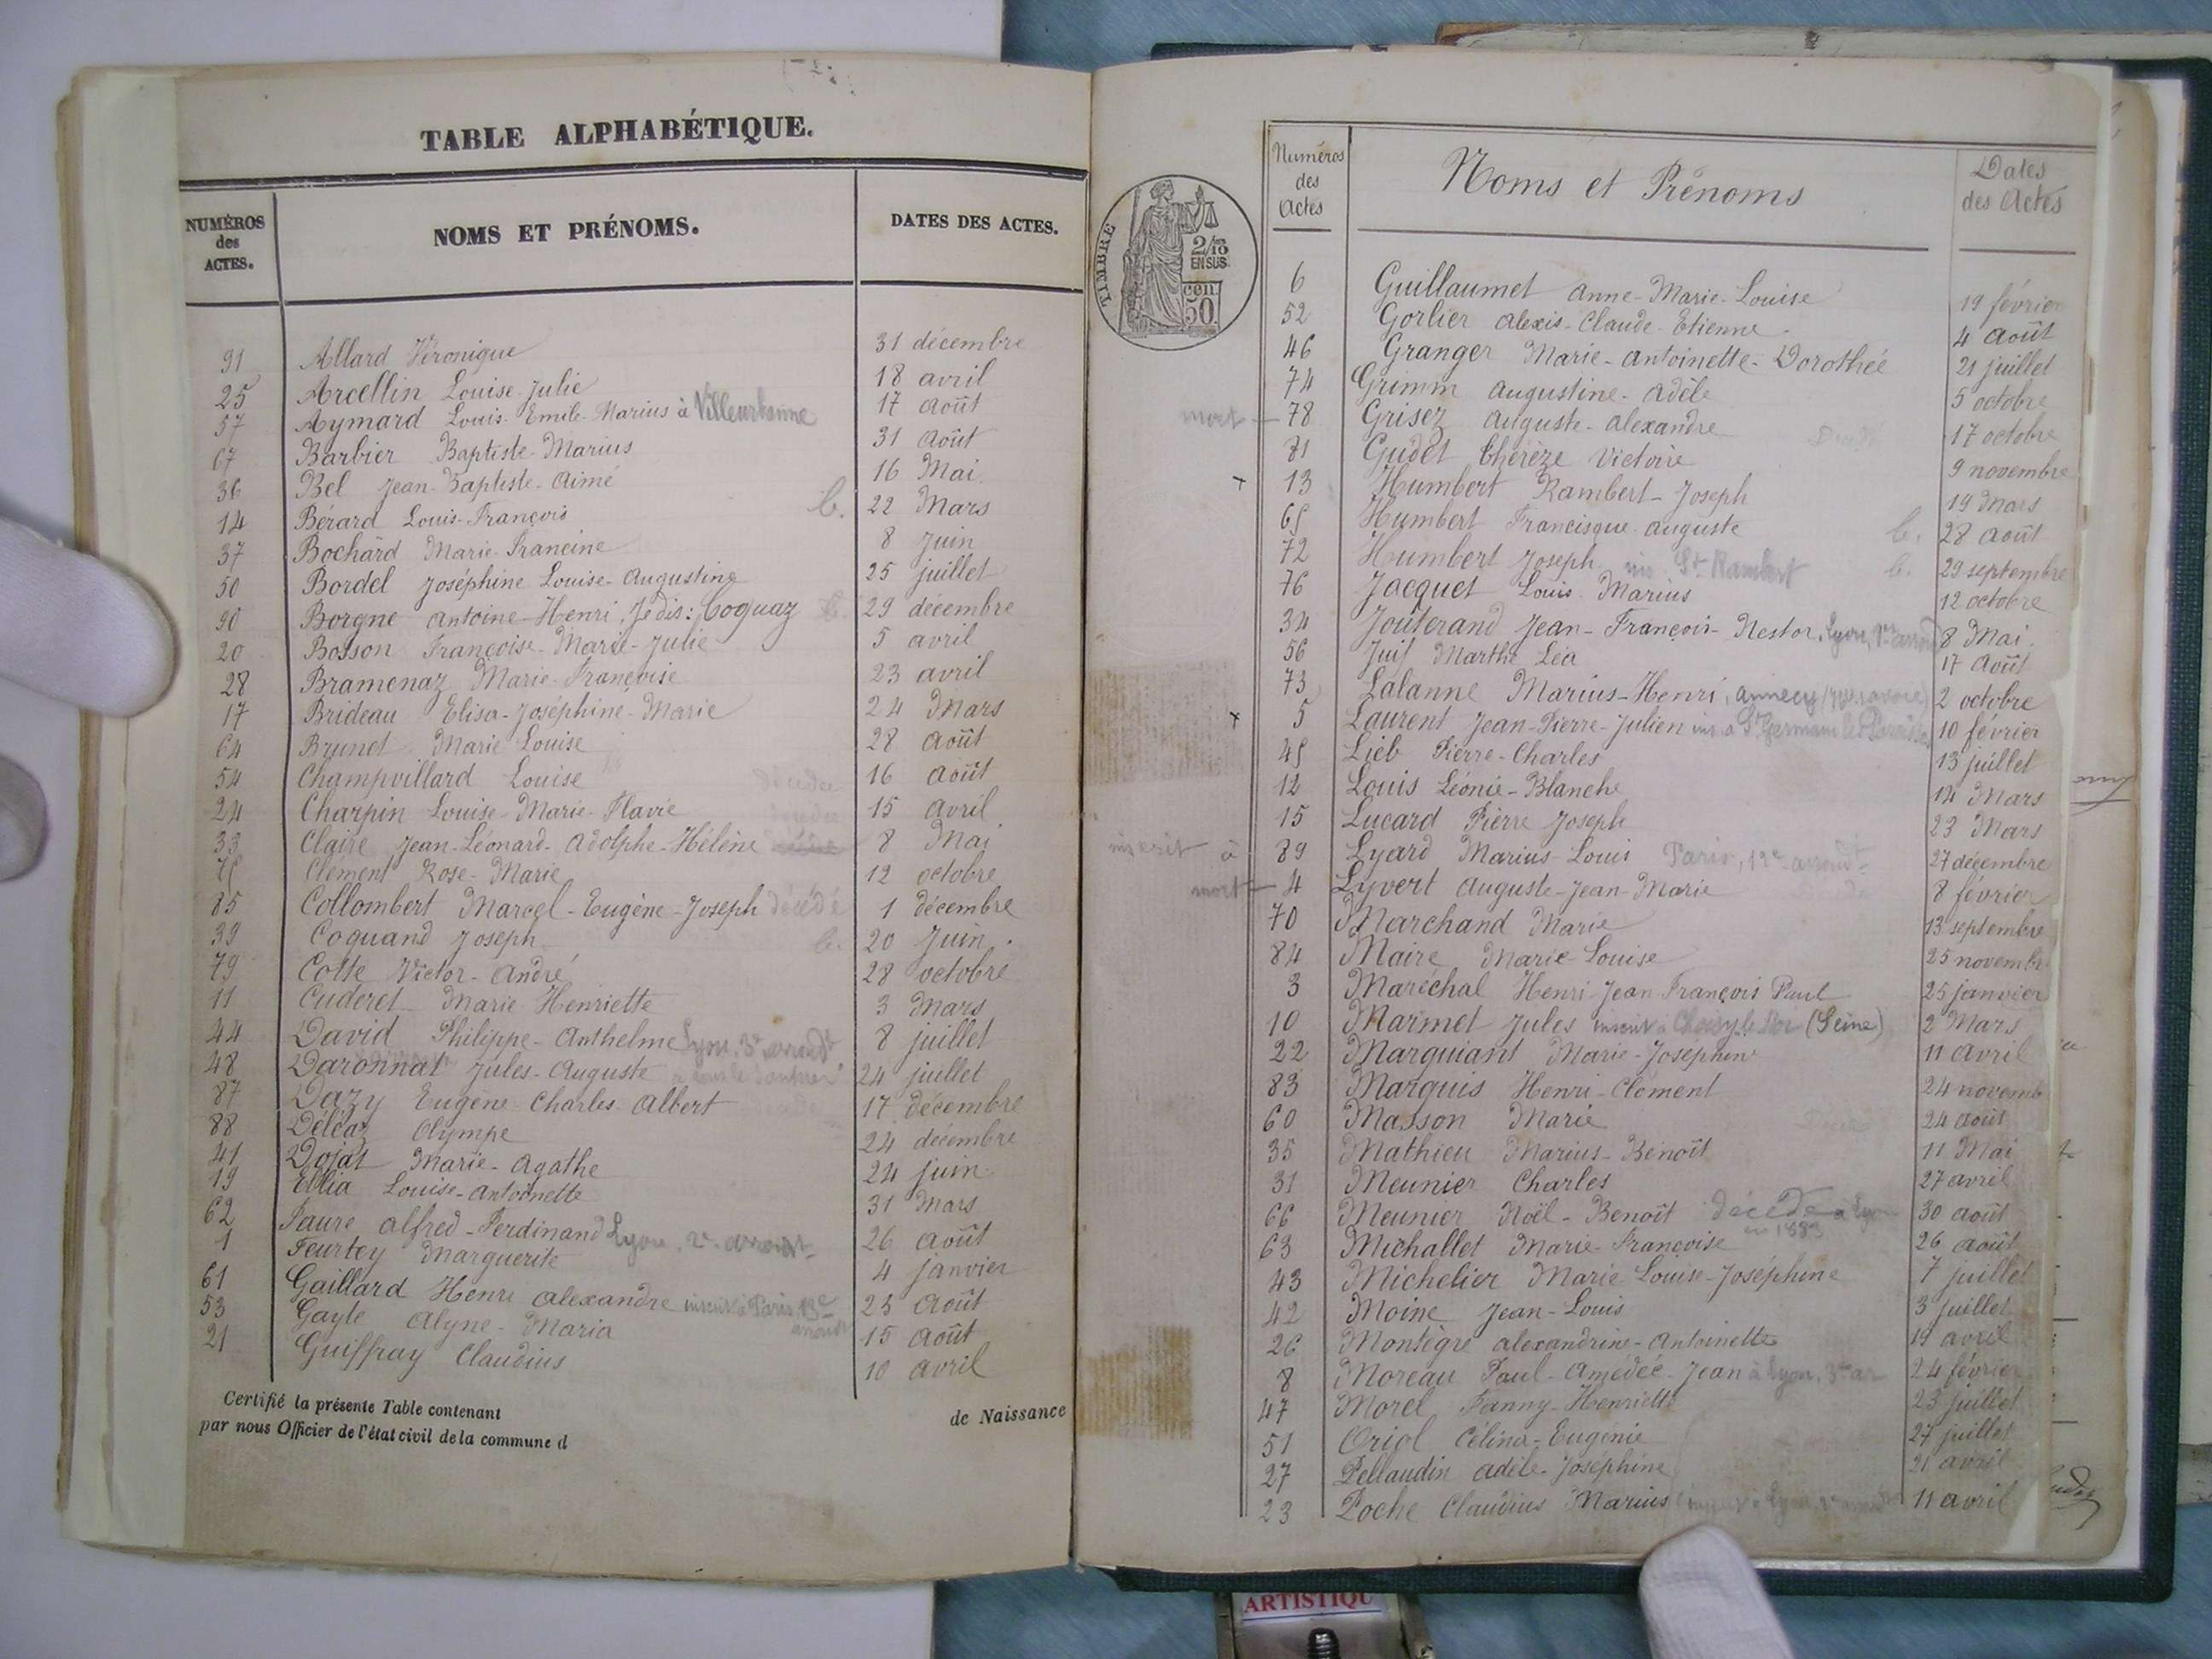 TABLE ALPHABÉTIQUE.
NUMÉROS des ACTES.
NOMS ET PRÉNOMS.
DATES DES ACTES.
91 Allard Véronique 31 décembre
25 Arcellin Louise-Julie 18 avril
57 Aymard Louis-Emile-Marius à Villeurbanne 17 Août
67 Barbier Baptiste-Marius 31 Août
36 Bel Jean-Baptiste-Aimé 16 Mai
14 Bérard Louis-François b. 22 Mars
37 Bochard Marie-Francine 8 Juin
50 Bordel Joséphine Louise-Augustine 25 juillet
90 Borgne Antoine-Henri, Je dis: Coquaz 29 décembre
20 Bosson Françoise-Marie-Julie 5 avril
28 Bramenaz Marie-Françoise 23 avril
17 Brideau Elisa-Joséphine-Marie 24 Mars
64 Brunet Marie Louise 28 Août
54 Champvillard Louise décédée 16 Août
24 Charpin Louise-Marie-Flavie décédée 15 Avril
33 Claire Jean-Léonard-Adolphe-Hélène 8 Mai
75 Clément Rose-Marie 12 octobre
85 Collombert Marcel-Eugène-Joseph décédé 1 décembre
39 Coquand Joseph b. 20 Juin.
79 Cotte Victor-André 28 octobre
11 Cuderet Marie Henriette 3 Mars
44 David Philippe-Anthelme Lyon, 3e arrondt 8 juillet
48 Daronnat Jules-Auguste 24 juillet
87 Dazy Eugène-Charles-Albert 17 décembre
88 Déléaz Olympe 24 décembre
41 Dojat Marie-Agathe 24 juin
19 Ellia Louise-Antoinette 31 Mars
62 Faure Alfred-Ferdinand Lyon, 2e arrondt 26 Août
1 Feurtey Marguerite 4 janvier
61 Gaillard Henri Alexandre inscrit à Paris, 13e arrondt 25 Août
53 Gayte Alyne-Maria 15 Août
21 Guiffray Claudius 10 avril
Certifié la présente Table contenant de Naissance
par nous Officier de l'état civil de la commune d
TIMBRE
2/10 EN SUS
50 cen.
Numéros des Actes
Noms et Prénoms
Dates des Actes
6 Guillaumet Anne-Marie-Louise 19 février
52 Gorlier Alexis-Claude-Etienne 4 Août
46 Granger Marie-Antoinette-Dorothée 21 juillet
74 Grimm Augustine-Adèle 5 octobre
mort 78 Grisez Auguste-Alexandre 17 octobre
81 Gudet Thérèze Victoire 9 novembre
x 13 Humbert Rambert-Joseph 19 Mars
65 Humbert Francisque-Auguste b. 28 Août
72 Humbert Joseph ins. St Rambert b. 29 septembre
76 Jacquet Louis-Marius 12 octobre
34 Jouterand Jean-François-Nestor, Lyon, 8 Mai
56 Juif Marthe Léa 17 Août
73 Lalanne Marius-Henri, Annecy (Hte savoie) 2 octobre
x 5 Laurent Jean-Pierre-Julien ins. à St Germain 10 février
45 Lieb Pierre-Charles 13 juillet
12 Louis Léonie-Blanche 14 Mars
15 Lucard Pierre Joseph 23 Mars
inscrit à 89 Lyard Marius-Louis Paris, 12e arrondt 27 décembre
mort 4 Lyvert Auguste-Jean-Marie 8 février
70 Marchand Marie 13 septembre
84 Maire Marie-Louise 25 novembre
3 Maréchal Henri-Jean-François Paul 25 janvier
10 Marmet Jules inscrit à Choisy le Roi (Seine) 2 Mars
22 Marquiant Marie-Joséphine 11 avril
83 Marquis Henri-Clément 24 novemb
60 Masson Marie 24 Août
35 Mathieu Marius-Benoît 11 Mai
31 Meunier Charles 27 avril
66 Meunier Noël-Benoît Décédé à Lyon en 1883 30 Août
63 Michallet Marie-Françoise 26 Août
43 Michelier Marie Louise-Joséphine 7 juillet
42 Moine Jean-Louis 3 juillet
26 Montègre Alexandrine-Antoinette 19 avril
8 Moreau Paul-Amédée-Jean à Lyon, 3me ar 24 février
47 Morel Fanny-Henriette 23 juillet
51 Oriol Célina-Eugénie 27 juillet
27 Pellaudin Adèle-Joséphine 21 avril
23 Poche Claudius Marius 11 avril
ARTISTIQU